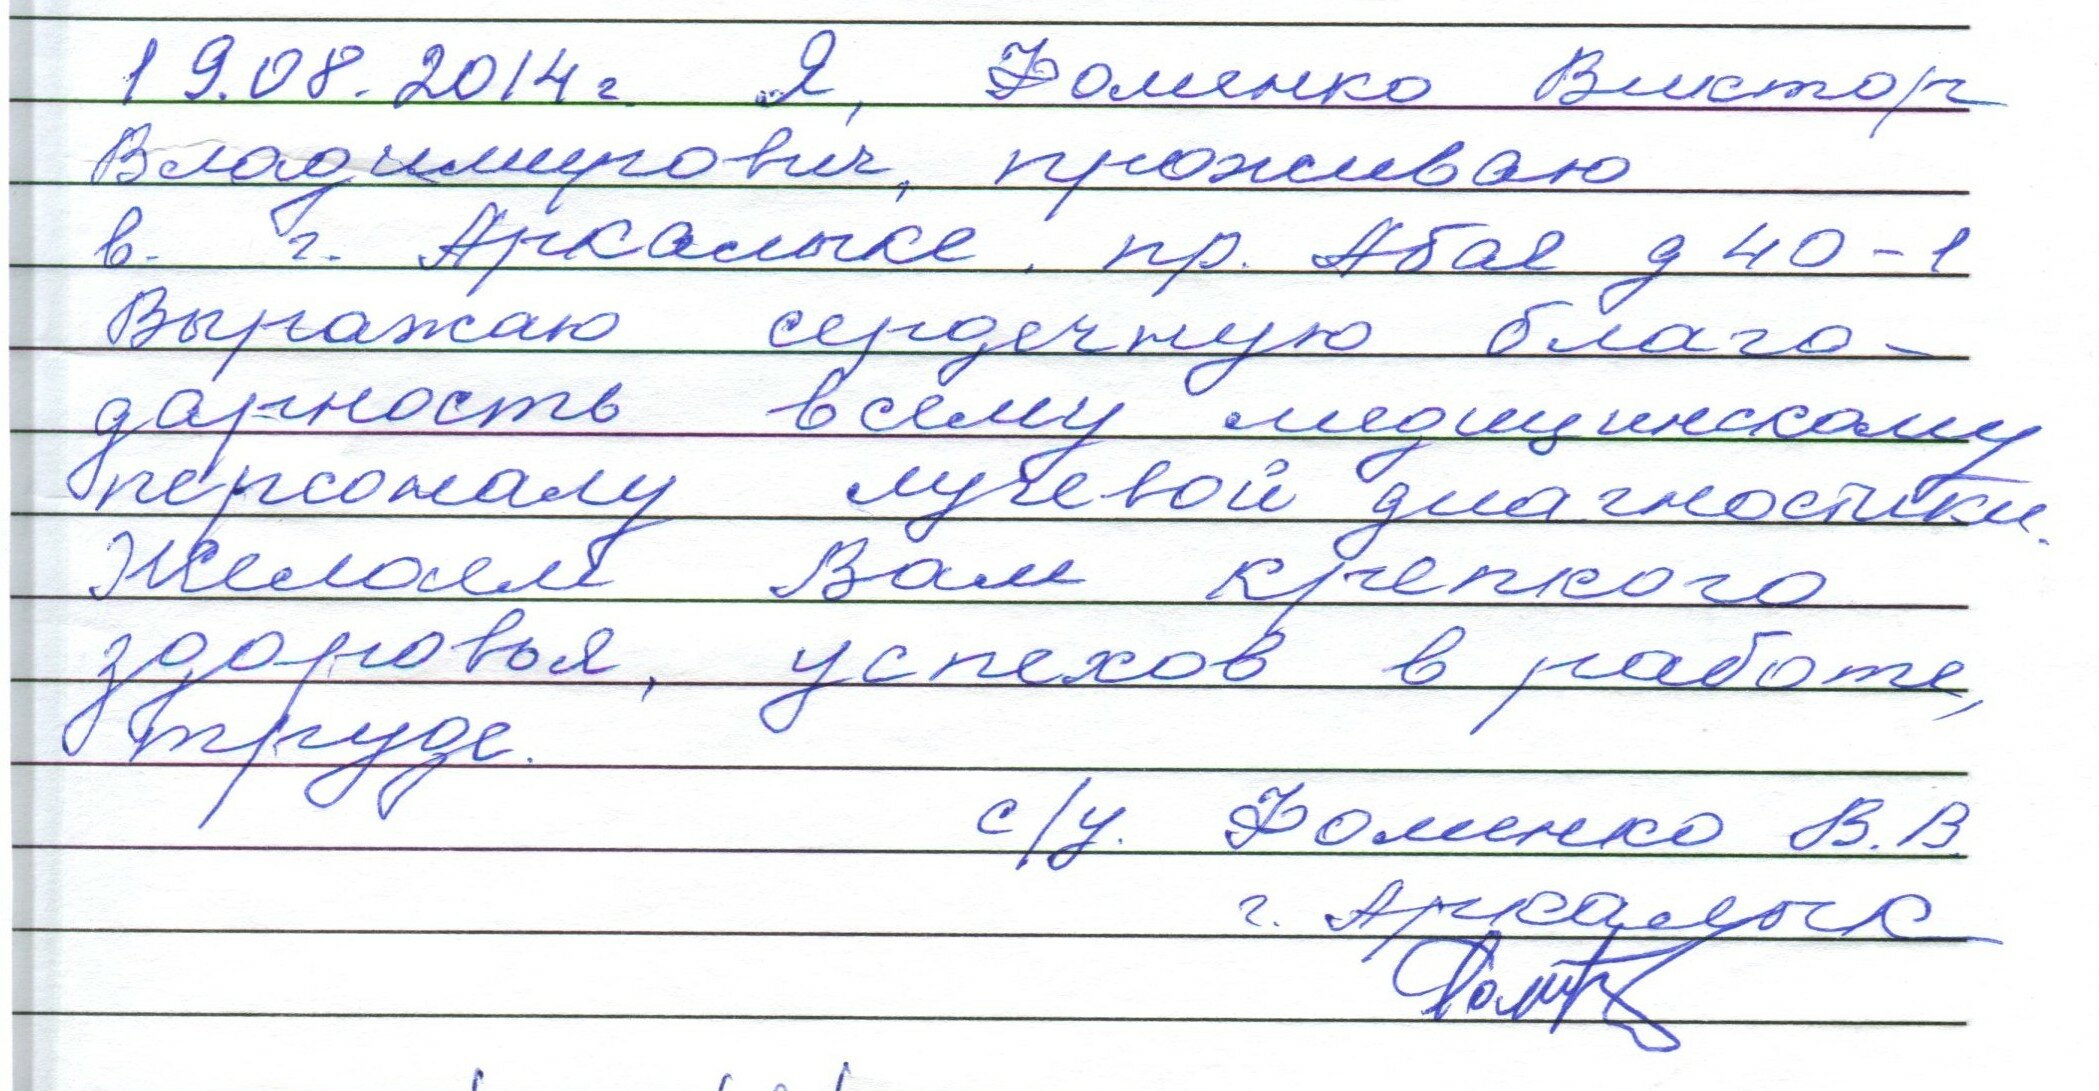 19.08.2014г. Я, Фоменко Виктор
Владимирович, проживаю
в. г. Аркалыке. пр. Абая д 40-1
Выражаю сердечную благо-
дарность всему медицинскому
персоналу лучевой диагностики.
Желаем Вам крепкого
здоровья, успехов в работе,
труде.
с/у. Фоменко В.В.
г. Аркалык